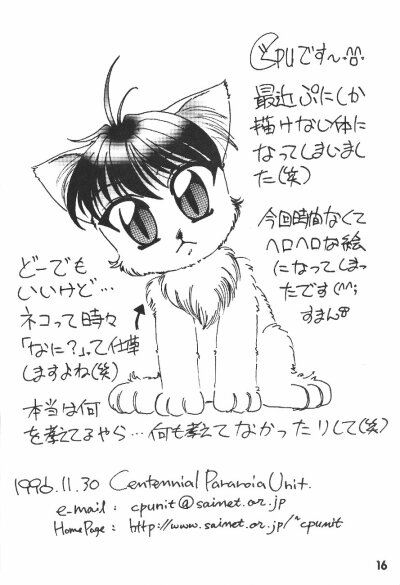 CPUです〜^^;
最近ぷにしか
描けない体に
なってしまいまし
た(笑)
今回時間なくて
ヘロヘロな絵
になってしまっ
たです(^^;
すまん
どーでも
いいけど…
ネコって時々
「なに?」って仕草
しますよね(笑)
本当は何
を考えてるやら…何も考えてなかったりして(笑)
1996.11.30 Centennial Paranoia Unit.
e-mail : cpunit@sainet.or.jp
HomePage : http://www.sainet.or.jp/~cpunit
16